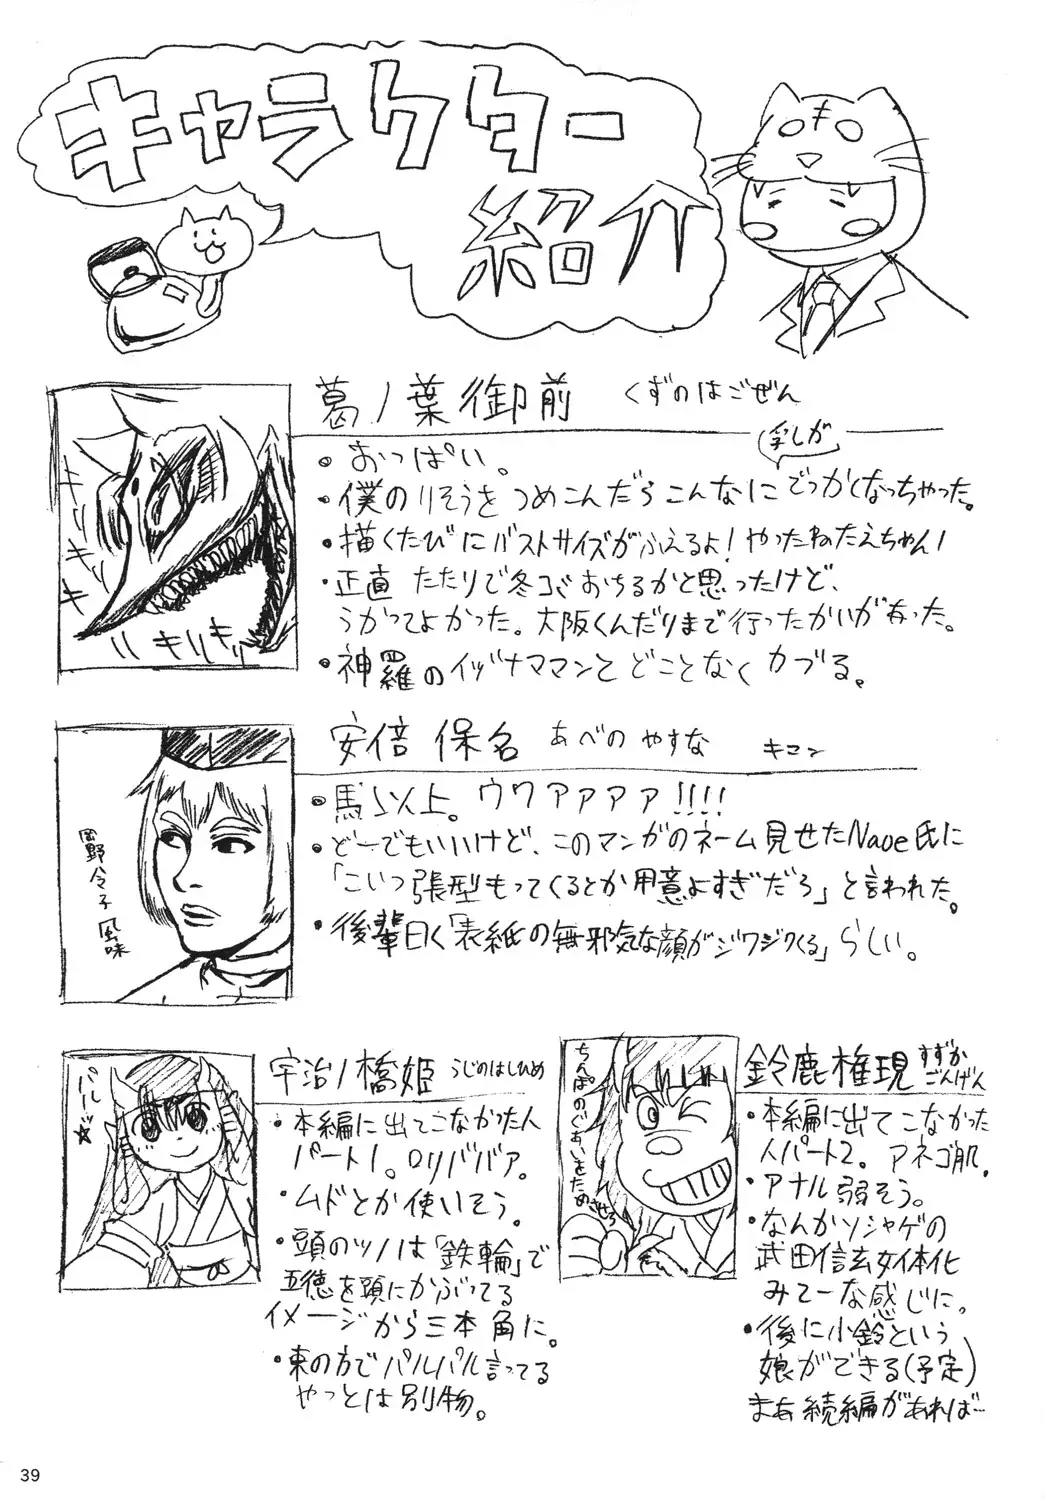 キャラクター
紹介
葛ノ葉御前 くずのはごぜん
・おっぱい。
・僕のりそうをつめこんだらこんなに乳しがでっかくなっちゃった。
・描くたびにバストサイズがふえるよ！やったねたえちゃん！
・正直 たたりで冬コミおちるかと思ったけど、
うかってよかった。大阪くんだりまで行ったかいがあった。
・神羅のイヅナママンとどことなくカブる。
キリキリ
安倍 保名 あべの やすな キコン
・馬以上。ウワアァァァ!!!!
・どーでもいいけど、このマンガのネーム見せたNaoe氏に
「こいつ張型もってくるとか用意よすぎだろ」と言われた。
・後輩曰く「表紙の無邪気な顔がジワジワくる」らしい。
岡野令子風味
宇治ノ橋姫 うじのはしひめ
・本編に出てこなかった人
パート1。ロリババア。
・ムドとか使いそう。
・頭のツノは「鉄輪」で
五徳を頭にかぶってる
イメージから三本角に。
・東の方でパルパル言ってる
やっとは別物。
パルーッ☆
鈴鹿権現 すずかごんげん
・本編に出てこなかった
人パート2。アネゴ肌。
・アナル弱そう。
・なんかソシャゲの
武田信玄女体化
みてーな感じに。
・後に小鈴という
娘ができる(予定)
まあ続編があれば…
ちんぽのぐあいをためさせろ
39